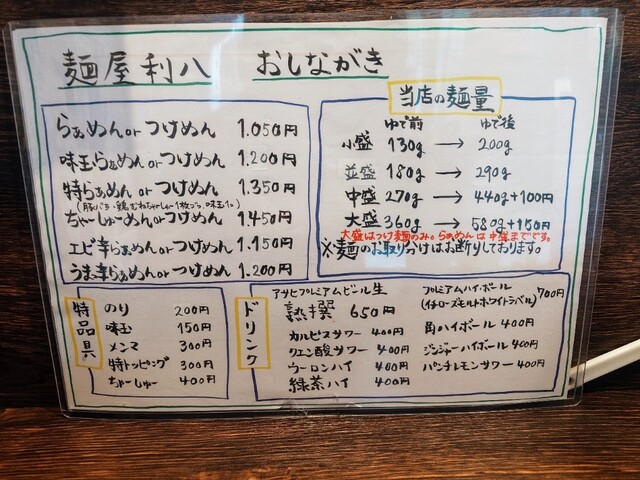 麺屋利八 おしながき
らぁめんorつけめん 1.050円
味玉らぁめんorつけめん 1.200円
特らぁめんorつけめん 1.350円
(豚バラ・鶏むねちゃーしゅー1枚づつ、味玉1コ)
ちゃーしゅーめんorつけめん 1.450円
エビ辛らぁめんorつけめん 1.150円
うま辛らぁめんorつけめん 1.200円
当店の麺量
ゆで前 ゆで後
小盛 130g → 200g
並盛 180g → 290g
中盛 270g → 440g+100円
大盛 360g → 580g+150円
大盛はつけ麺のみ。らぁめんは中盛までです。
※麺のお取り分けはお断りしております。
特品具
のり 200円
味玉 150円
メンマ 300円
特トッピング 300円
ちゃーしゅー 400円
ドリンク
アサヒプレミアムビール生
熟撰 650円
カルピスサワー 400円
クエン酸サワー 400円
ウーロンハイ 400円
緑茶ハイ 400円
プレミアムハイボール
(イチローズモルトホワイトラベル) 700円
角ハイボール 400円
ジンジャーハイボール 400円
パンチレモンサワー 400円